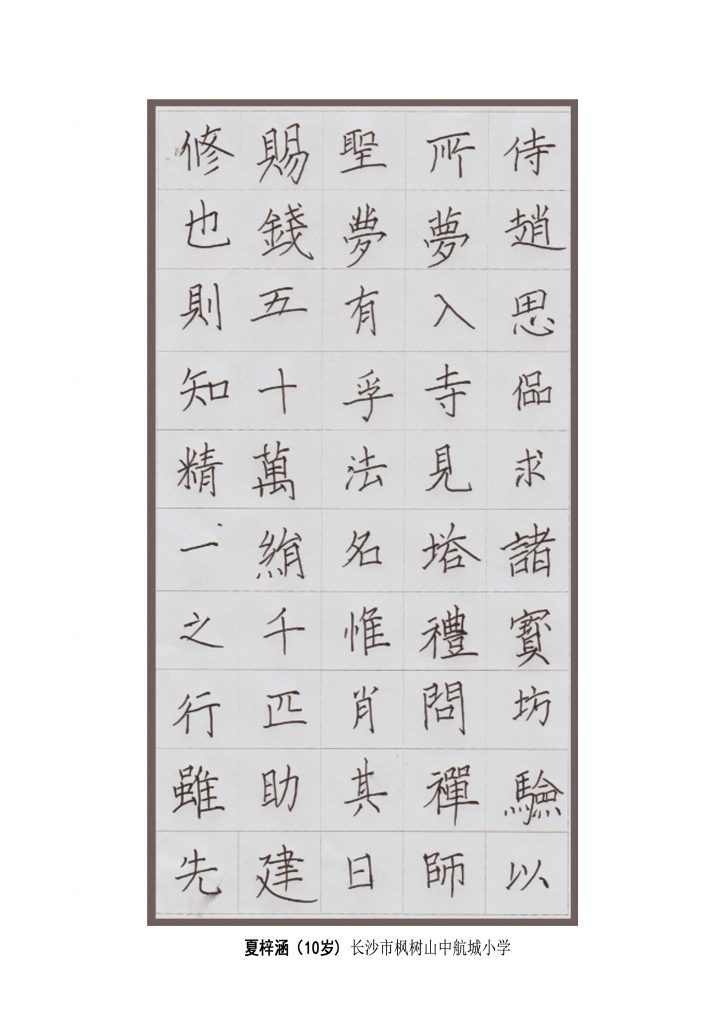 侍趙思侃求諸寶坊驗以
所夢入寺見塔禮問禪師
聖夢有孚法名惟肖其日
賜錢五十萬絹千匹助建
修也則知精一之行雖先
夏梓涵（10岁）长沙市枫树山中航城小学